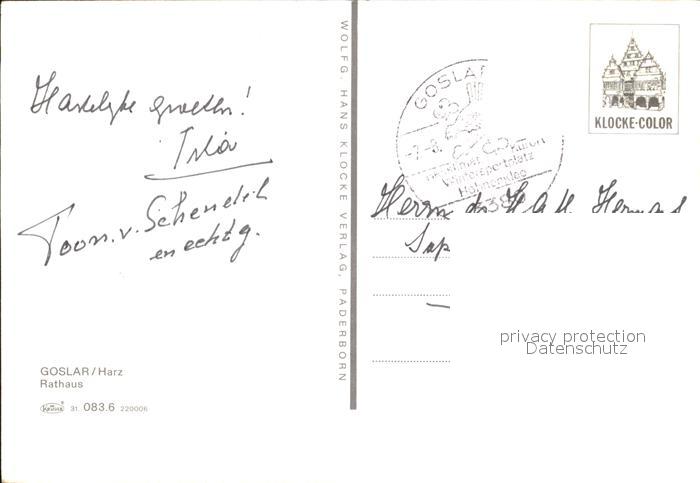 Hartelijke groeten!
Toon. v. Schendel
en echtg.
GOSLAR/Harz
Rathaus
Krüger 31. 083.6 220006
WOLFG. HANS KLOCKE VERLAG, PADERBORN
GOSLAR
-7.-8.
Wintersportplatz
Hahnenklee
338
KLOCKE-COLOR
Herrn dr. H.
privacy protection
Datenschutz